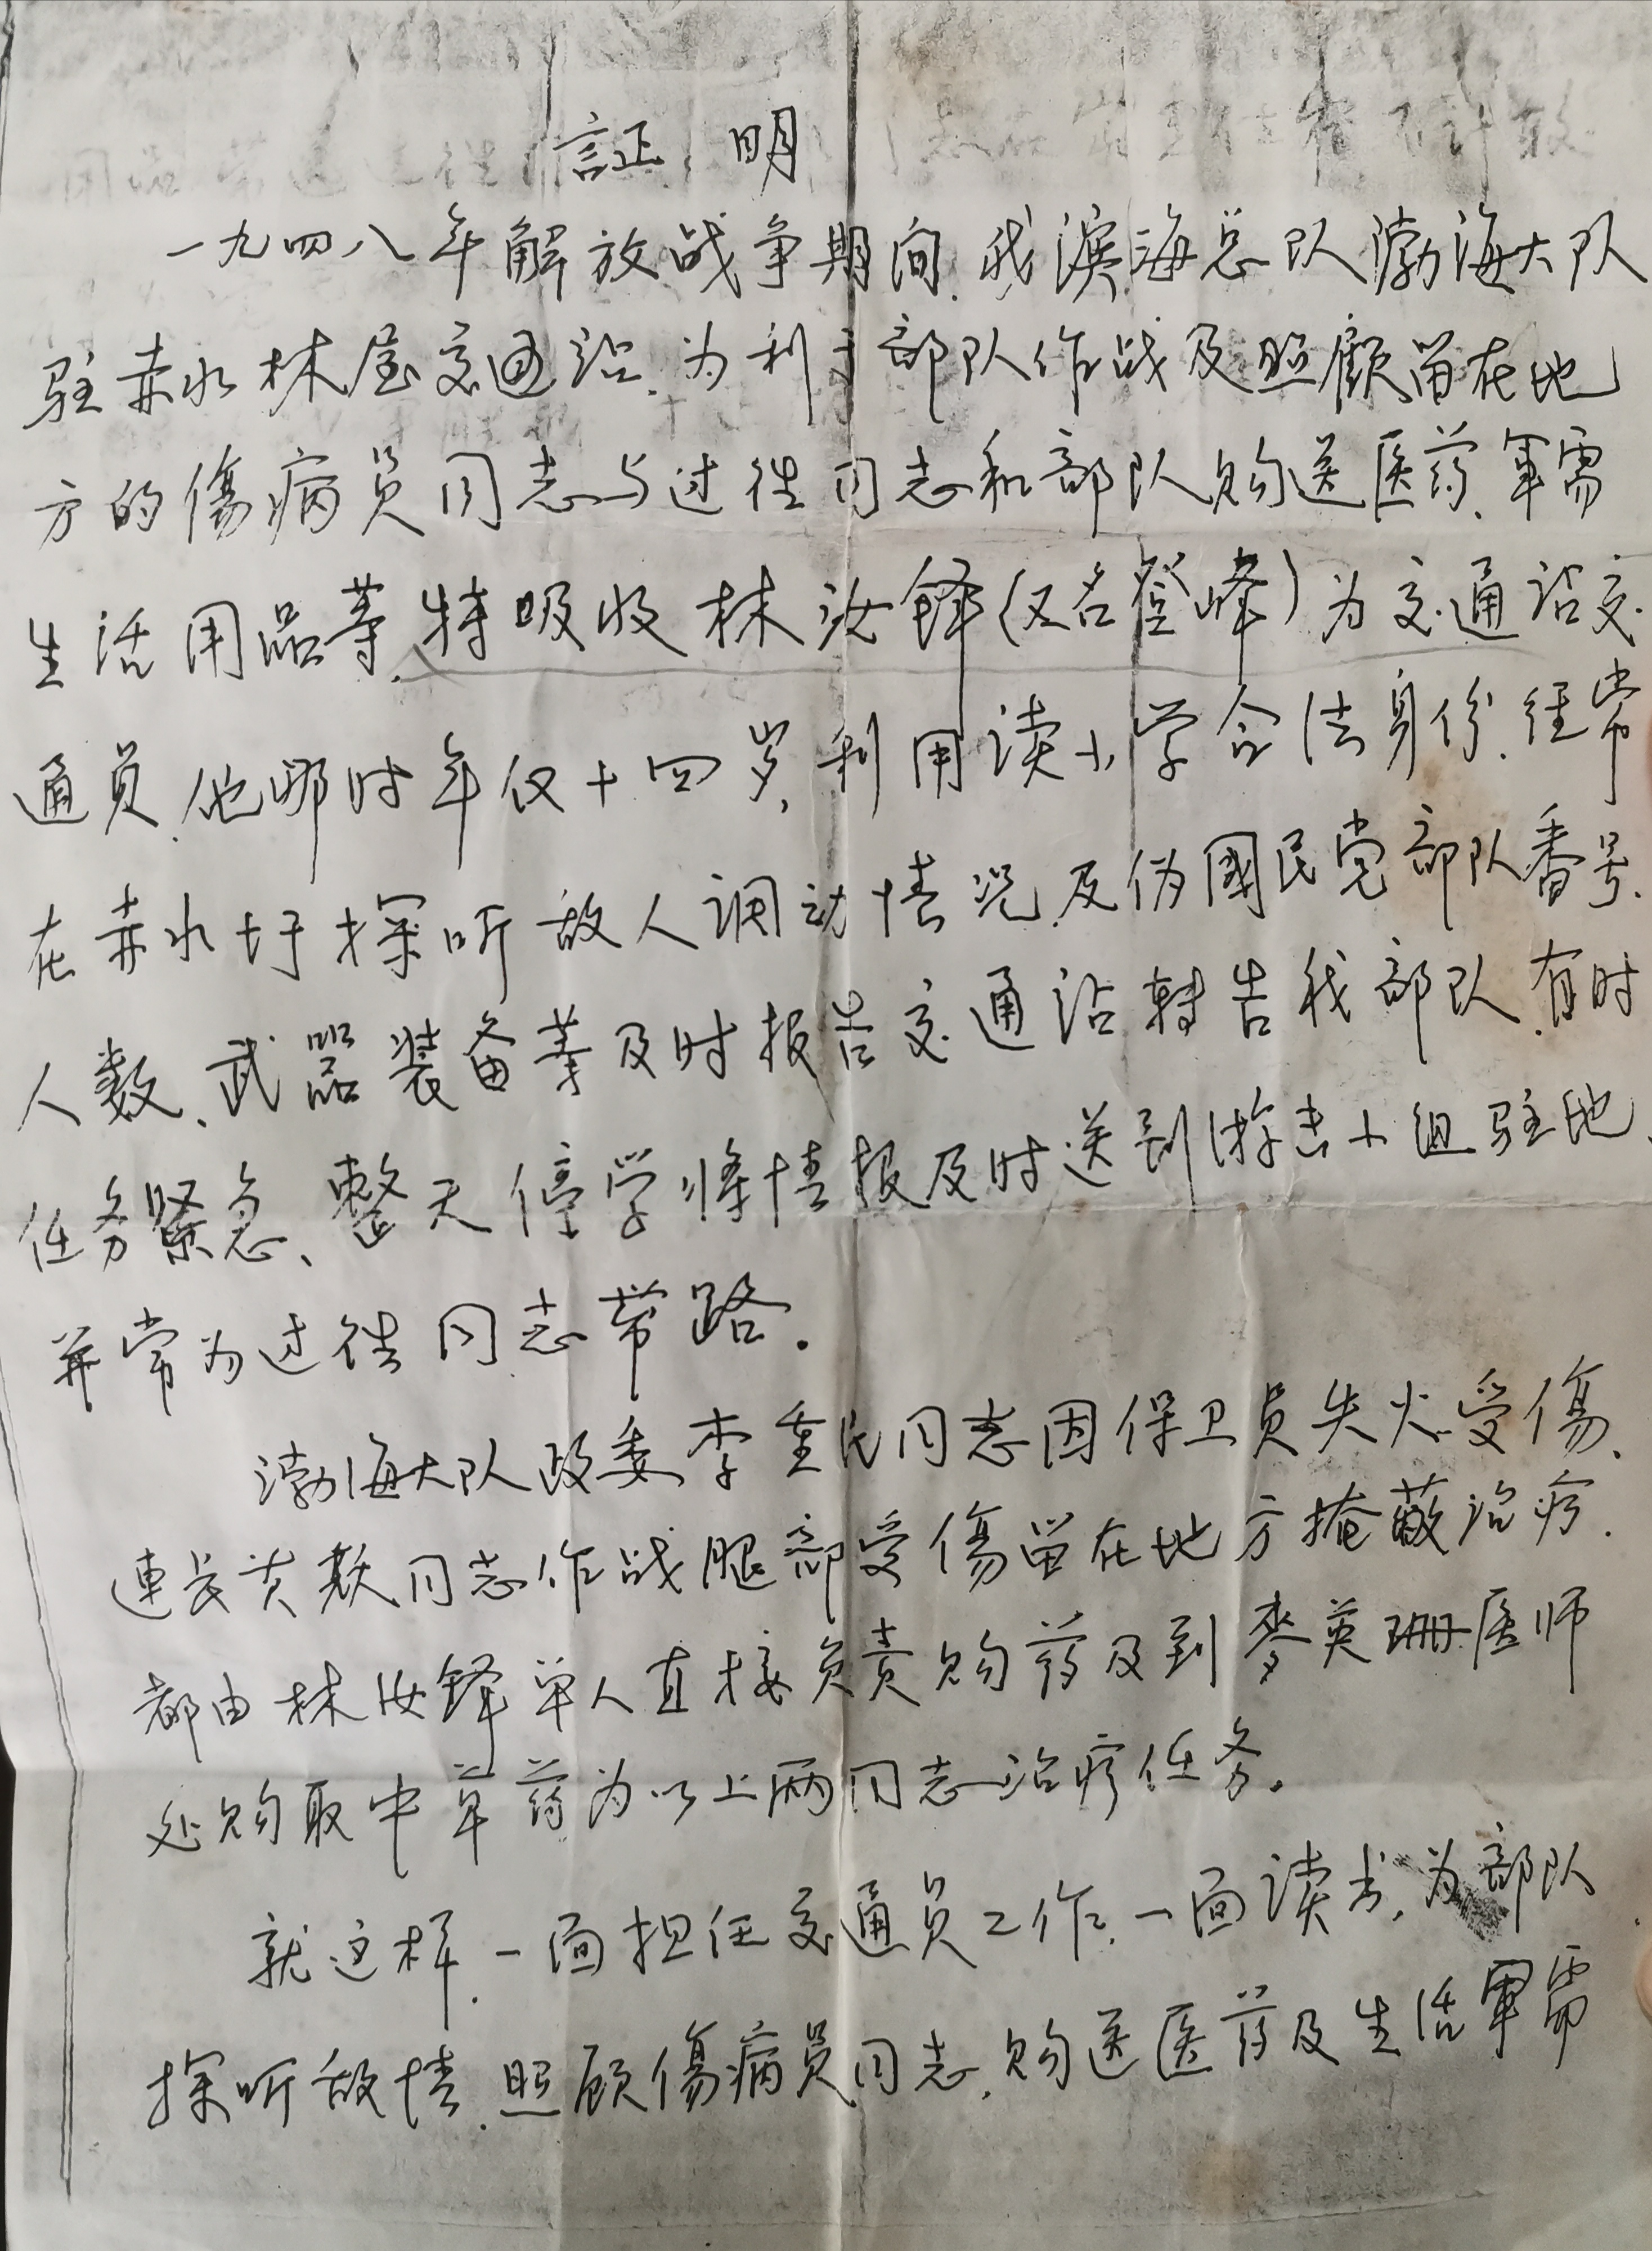 証 明
一九四八年解放战争期间,我滨海总队渤海大队
驻赤水林屋交通站,为利于部队作战及照顧留在地
方的傷病员同志与过往同志和部队购送医药、軍需
生活用品等,特吸收林汝鋒(又名登峰)为交通站交
通员,他那时年仅十四岁,利用读小学合法身份,经常
在赤水圩探听敌人调动情况及伪國民党部队番号、
人数、武器装备等及时报告交通站转告我部队,有时
任务緊急、整天停学将情报及时送到游击小组驻地、
并常为过往同志带路。
渤海大队政委李重民同志因保卫员失火受傷、
連长黄 同志作战腿部受傷留在地方掩蔽治疗.
都由林汝鋒单人直接负责购药及到麥英珊医师
处购取中草药为以上两同志治疗任务。
就这样,一面担任交通员工作,一面读书,为部队
探听敌情,照顾傷病员同志,购送医药及生活軍需